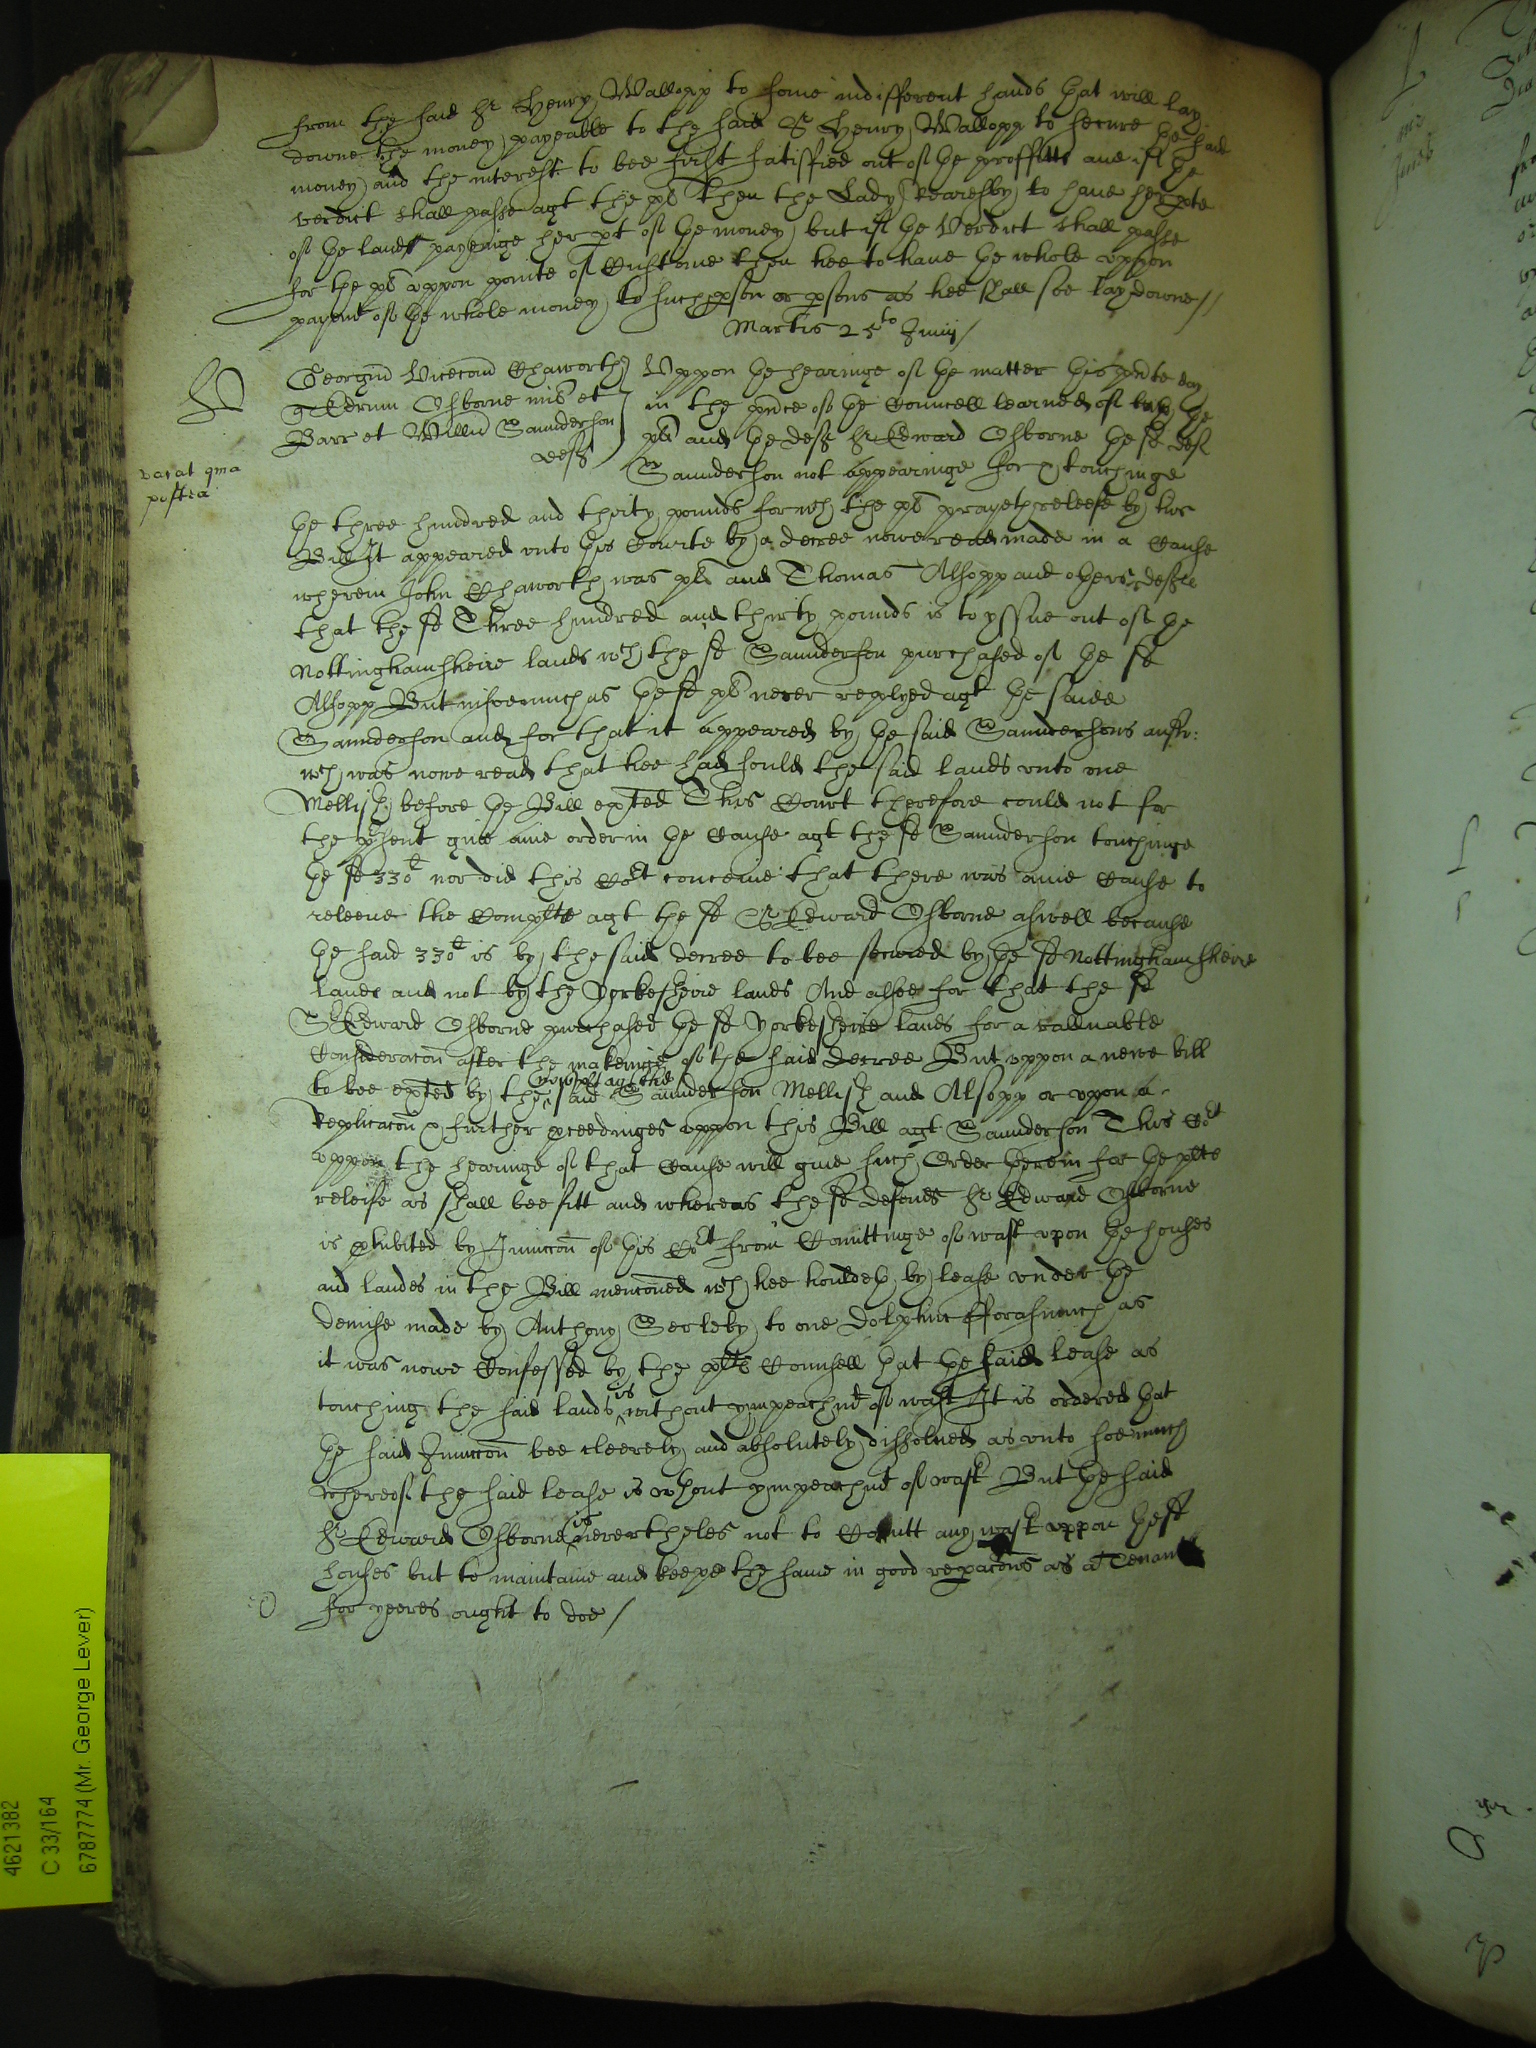 from the said Sr Henry Wallopp to some indifferent hands that will lay
downe the money payeable to the said Sr Henry Wallopp to secure the said
money and the interest to bee first satisfied out of the proffitts and if the
verdict shall passe agt the pl then the Lady Kearesby to have her pte
of the lands payeinge her pt of the money but if the Verdict shall passe
for the pl uppon pointe of Custome then hee to have the whole uppon
paymt of the whole money to such pson or psons as hee shall soe lay downe //
Martis 25to Junij /
Georgiu Vicecom Chaworth
q Edrum Osborne mil et
Barr et Willm Saunderson
defts
Uppon the hearinge of the matter this pnte day
in the pnce of the Councell learned of both the
pl and the deft Sr Edward Osborne the sd deft
Saunderson not appearinge for & touchinge
vacat qma
postea
the three hundred and thirty pounds for wch the pl prayeth releefe by his
Bill It appeared unto this Courte by a decree nowe read made in a Cause
wherein John Chaworth was pl and Thomas Alsopp and others defts
that the sd Three hundred and thirty pounds is to yssue out of the
Nottinghamsheire lands wch the sd Saunderson purchased of the sd
Alsopp But insoemuch as the sd pl never replyed agt the saide
Saunderson and for that it appeared by the said Saundersons answ:
wch was nowe read that hee had sould the said lands unto one
Mellish before the Bill exhted This Court therefore could not for
the psent give anie order in the Cause agt the sd Saunderson touchinge
the sd 330l nor did this Cort conceive that there was anie Cause to
releeve the Complte agt the sd Sr Edward Osborne aswell because
the said 330l is by the said decree to bee secured by the sd Nottinghamsheire
lands and not by the Yorkesheire lands And alsoe for that the sd
Sr Edward Osborne purchased the sd Yorkesheire lands for a valluable
Consideracon after the makeinge of the said decree But uppon a newe bill
to bee exhted by the now plt agt the said Saunderson Mellish and Alsopp or upon a
Replicacon & further pceedinges uppon this Bill agt Saunderson This Cort
uppon the hearinge of that Cause will give such Order therein for the plts
releife as shall bee fitt and whereas the sd defendt Sr Edward Osborne
is phibited by Iniunccon of this Cort from Comittinge of wast upon the houses
and landes in the Bill menconed wch hee houldeth by lease under the
demise made by Anthony Serleby to one Dolphin fforasmuch as
it was nowe Confessed by the plts Counsell that the said lease as
touching the said lands is without ympeachmt of wast It is ordered that
the said Iniunccon bee cleerely and absolutely dissolved as unto soe much
whereof the said lease is wthout ympeachmt of wast But the said
Sr Edward Osborne is nevertheles not to Comitt any wast uppon the sd
houses but to maintaine and keepe the same in good reparacons as a Tenant
for yeeres ought to doe /
4621382
C 33/164
6787774 (Mr. George Lever)